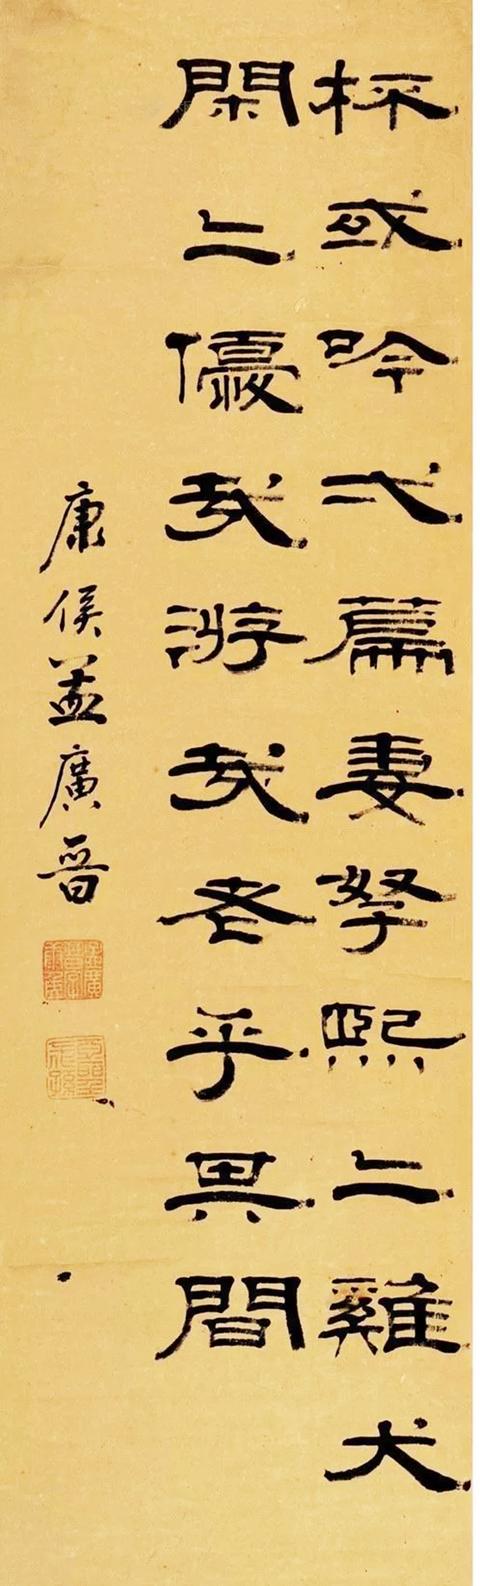 杯或吟弌篇妻孥熙二雞犬
閑二優哉游哉老乎其間
康侯孟廣晋